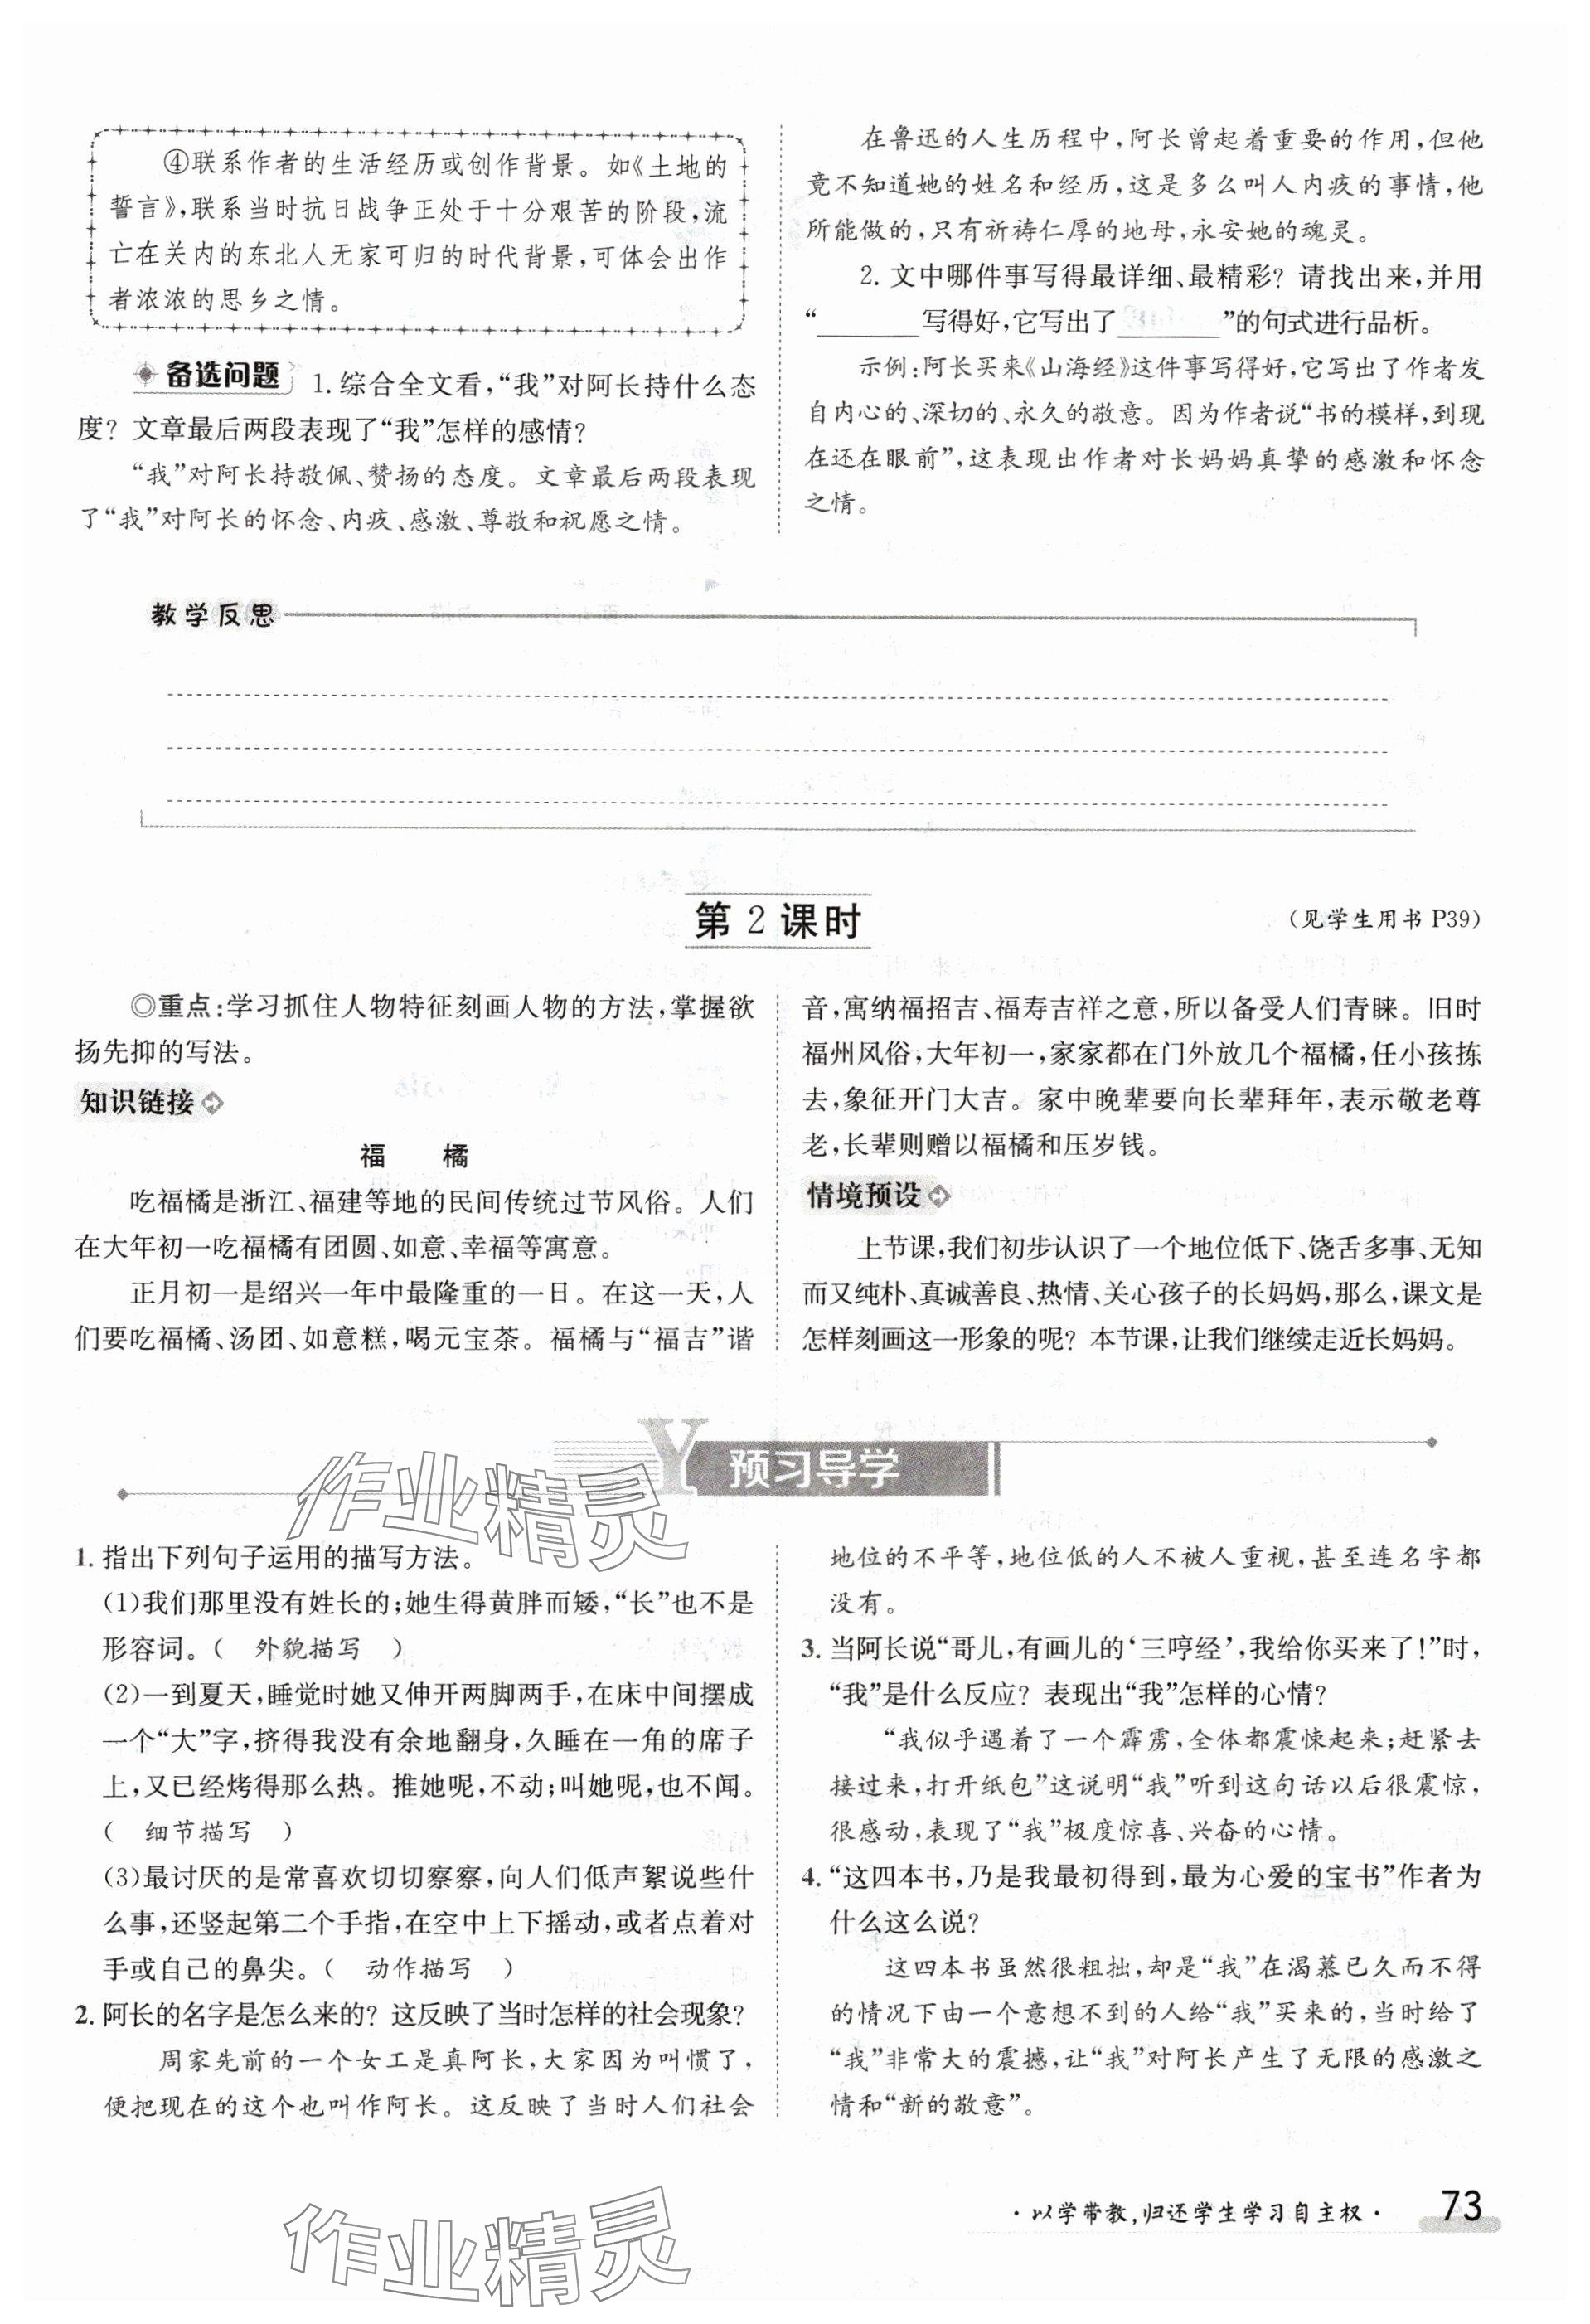 ④联系作者的生活经历或创作背景。如《土地的
誓言》,联系当时抗日战争正处于十分艰苦的阶段,流
亡在关内的东北人无家可归的时代背景,可体会出作
者浓浓的思乡之情。
备选问题 1. 综合全文看,“我”对阿长持什么态
度？文章最后两段表现了“我”怎样的感情？
“我”对阿长持敬佩、赞扬的态度。文章最后两段表现
了“我”对阿长的怀念、内疚、感激、尊敬和祝愿之情。
在鲁迅的人生历程中,阿长曾起着重要的作用,但他
竟不知道她的姓名和经历,这是多么叫人内疚的事情,他
所能做的,只有祈祷仁厚的地母,永安她的魂灵。
2. 文中哪件事写得最详细、最精彩？请找出来,并用
“________写得好,它写出了________”的句式进行品析。
示例:阿长买来《山海经》这件事写得好,它写出了作者发
自内心的、深切的、永久的敬意。因为作者说“书的模样,到现
在还在眼前”,这表现出作者对长妈妈真挚的感激和怀念
之情。
教学反思
第 2 课时
(见学生用书 P39)
◎重点:学习抓住人物特征刻画人物的方法,掌握欲
扬先抑的写法。
知识链接
福 橘
吃福橘是浙江、福建等地的民间传统过节风俗。人们
在大年初一吃福橘有团圆、如意、幸福等寓意。
正月初一是绍兴一年中最隆重的一日。在这一天,人
们要吃福橘、汤团、如意糕,喝元宝茶。福橘与“福吉”谐
音,寓纳福招吉、福寿吉祥之意,所以备受人们青睐。旧时
福州风俗,大年初一,家家都在门外放几个福橘,任小孩拣
去,象征开门大吉。家中晚辈要向长辈拜年,表示敬老尊
老,长辈则赠以福橘和压岁钱。
情境预设
上节课,我们初步认识了一个地位低下、饶舌多事、无知
而又纯朴、真诚善良、热情、关心孩子的长妈妈,那么,课文是
怎样刻画这一形象的呢？本节课,让我们继续走近长妈妈。
Y 预习导学
作业精灵
1. 指出下列句子运用的描写方法。
(1)我们那里没有姓长的;她生得黄胖而矮,“长”也不是
形容词。( 外貌描写 )
(2)一到夏天,睡觉时她又伸开两脚两手,在床中间摆成
一个“大”字,挤得我没有余地翻身,久睡在一角的席子
上,又已经烤得那么热。推她呢,不动;叫她呢,也不闻。
( 细节描写 )
(3)最讨厌的是常喜欢切切察察,向人们低声絮说些什
么事,还竖起第二个手指,在空中上下摇动,或者点着对
手或自己的鼻尖。( 动作描写 )
2. 阿长的名字是怎么来的？这反映了当时怎样的社会现象？
周家先前的一个女工是真阿长,大家因为叫惯了,
便把现在的这个也叫作阿长。这反映了当时人们社会
地位的不平等,地位低的人不被人重视,甚至连名字都
没有。
3. 当阿长说“哥儿,有画儿的‘三哼经’,我给你买来了!”时,
“我”是什么反应？表现出“我”怎样的心情？
“我似乎遇着了一个霹雳,全体都震悚起来;赶紧去
接过来,打开纸包”这说明“我”听到这句话以后很震惊,
很感动,表现了“我”极度惊喜、兴奋的心情。
4. “这四本书,乃是我最初得到,最为心爱的宝书”作者为
什么这么说？
这四本书虽然很粗拙,却是“我”在渴慕已久而不得
的情况下由一个意想不到的人给“我”买来的,当时给了
“我”非常大的震撼,让“我”对阿长产生了无限的感激之
情和“新的敬意”。
作业精灵
·以学带教,归还学生学习自主权· 73